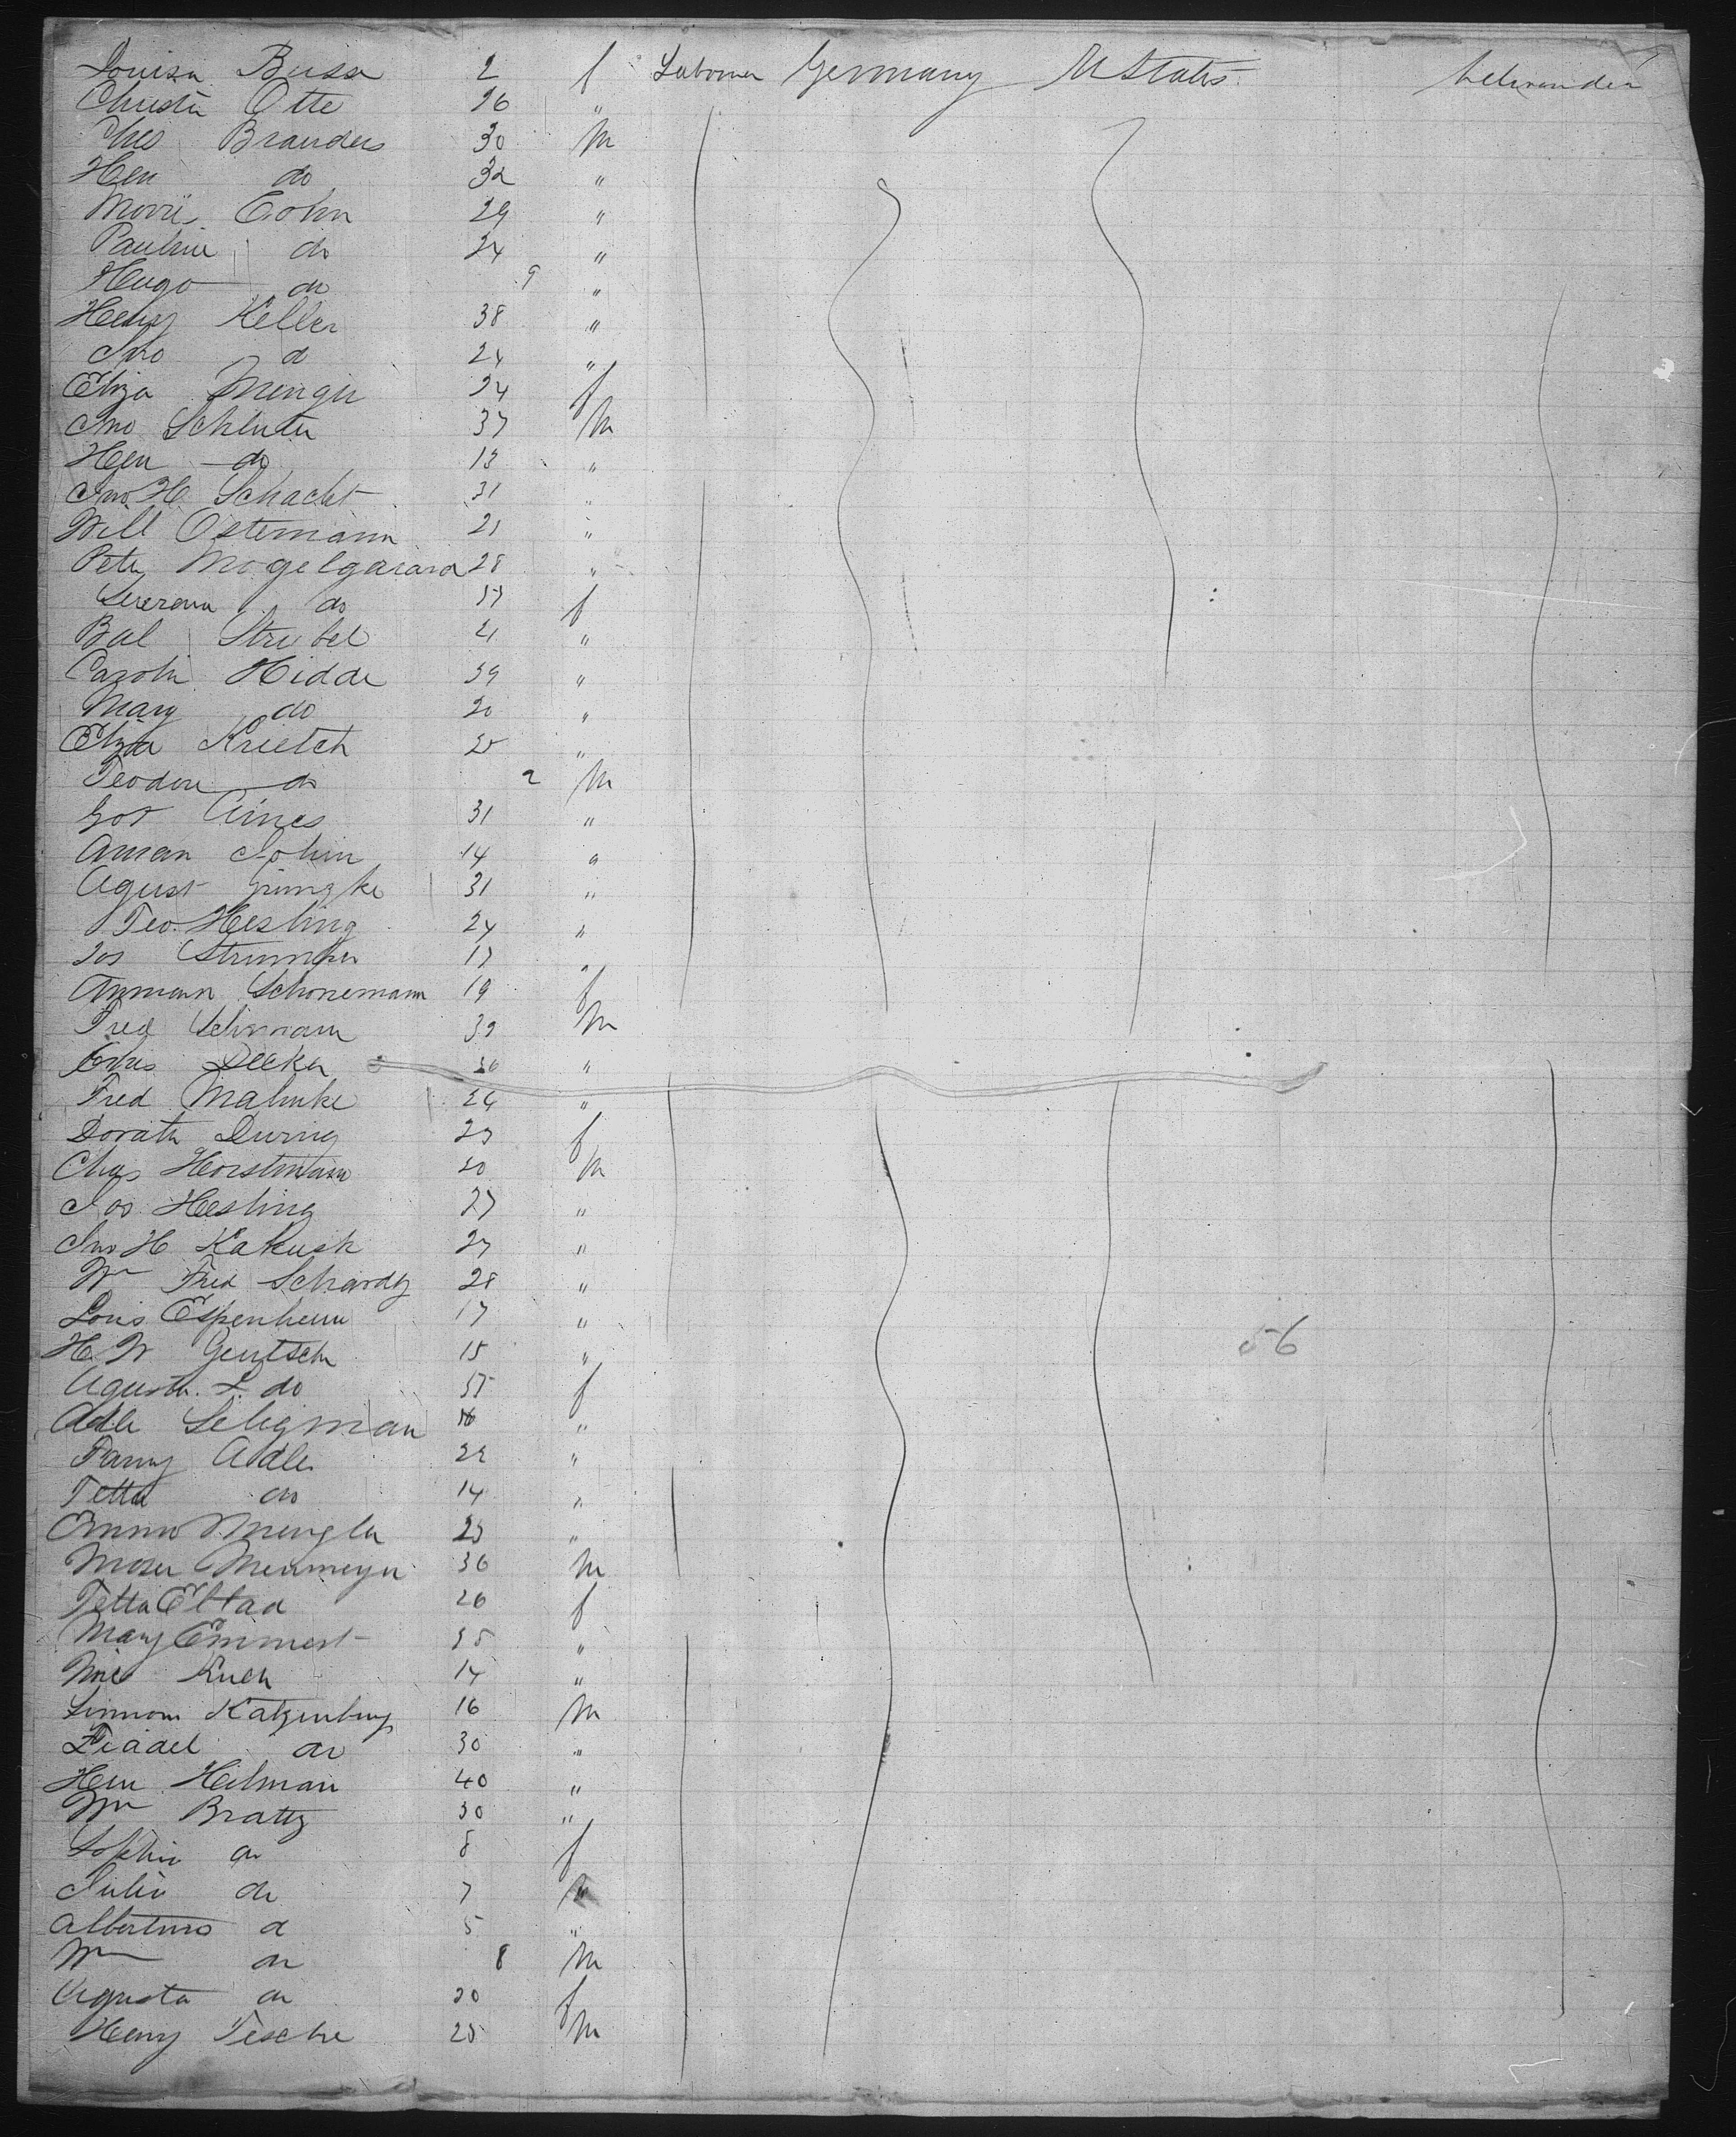 Louisa Bussa 2 f Laborer Germany U States
Christn Otte 26 "
Chs Branders 30 M
Hen do 32 "
Morris Cohn 29 "
Paulin do 24 "
Hugo do 9 "
Henry Keller 38 "
Jno d 24 "
Eliza Menger 24 f
Jno Schluter 37 M
Hen do 13 "
Jno H. Schacht 31 "
Will Ostermann 21 "
Peter Mogelgaard 28 "
do f
Bal Strubel 21 "
Carolin Hidde 39 "
Mary do 20 "
Eliza Krietch 25 "
Teodor do 2 M
Got Aines 31 "
Aman John 14 "
Agust Grimgke 31 "
Teo. Hesling 24 "
Jos Strumper 17 "
Anman Schonemann 19 f
Fred Schmann 39 M
Chris Decker 30 "
Fred Mahnke 24 "
Dorath During 23 f
Chas Horstmann 20 M
Jos Hesling 27 "
Jno H Kakusk 27 "
Wm Fred Schardy 28 "
Louis Espenheim 17 "
H. W Gentsch 15 "
Agusta. L do 57 f
Adle Seligman "
Fanny Adler 22 "
Tetta do 14 "
Emma Mengler 23 "
Moser Menmeyer 36 M
Tetta Eltad 26 f
Mary Emmert 35 "
Kuch 14 "
Simmon Katzenburg 16 M
do 30 "
Hen Heilman 40 "
Wm Bratz 30 "
Sophie do 8 f
Julia do 7 "
Albertina d 5 "
Wm do 8 M
Agusta do 20 f
56
Henry Tesche 25 M